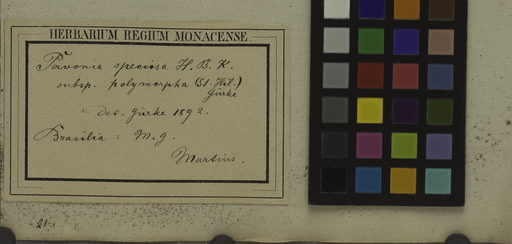 HERBARIUM REGIUM MONACENSE.
Pavonia speciosa H. B. K.
subsp. polymorpha (St. Hil.)
Gürke
Det. Gürke 1892.
Brasilia: M. g.
Martius.
21.